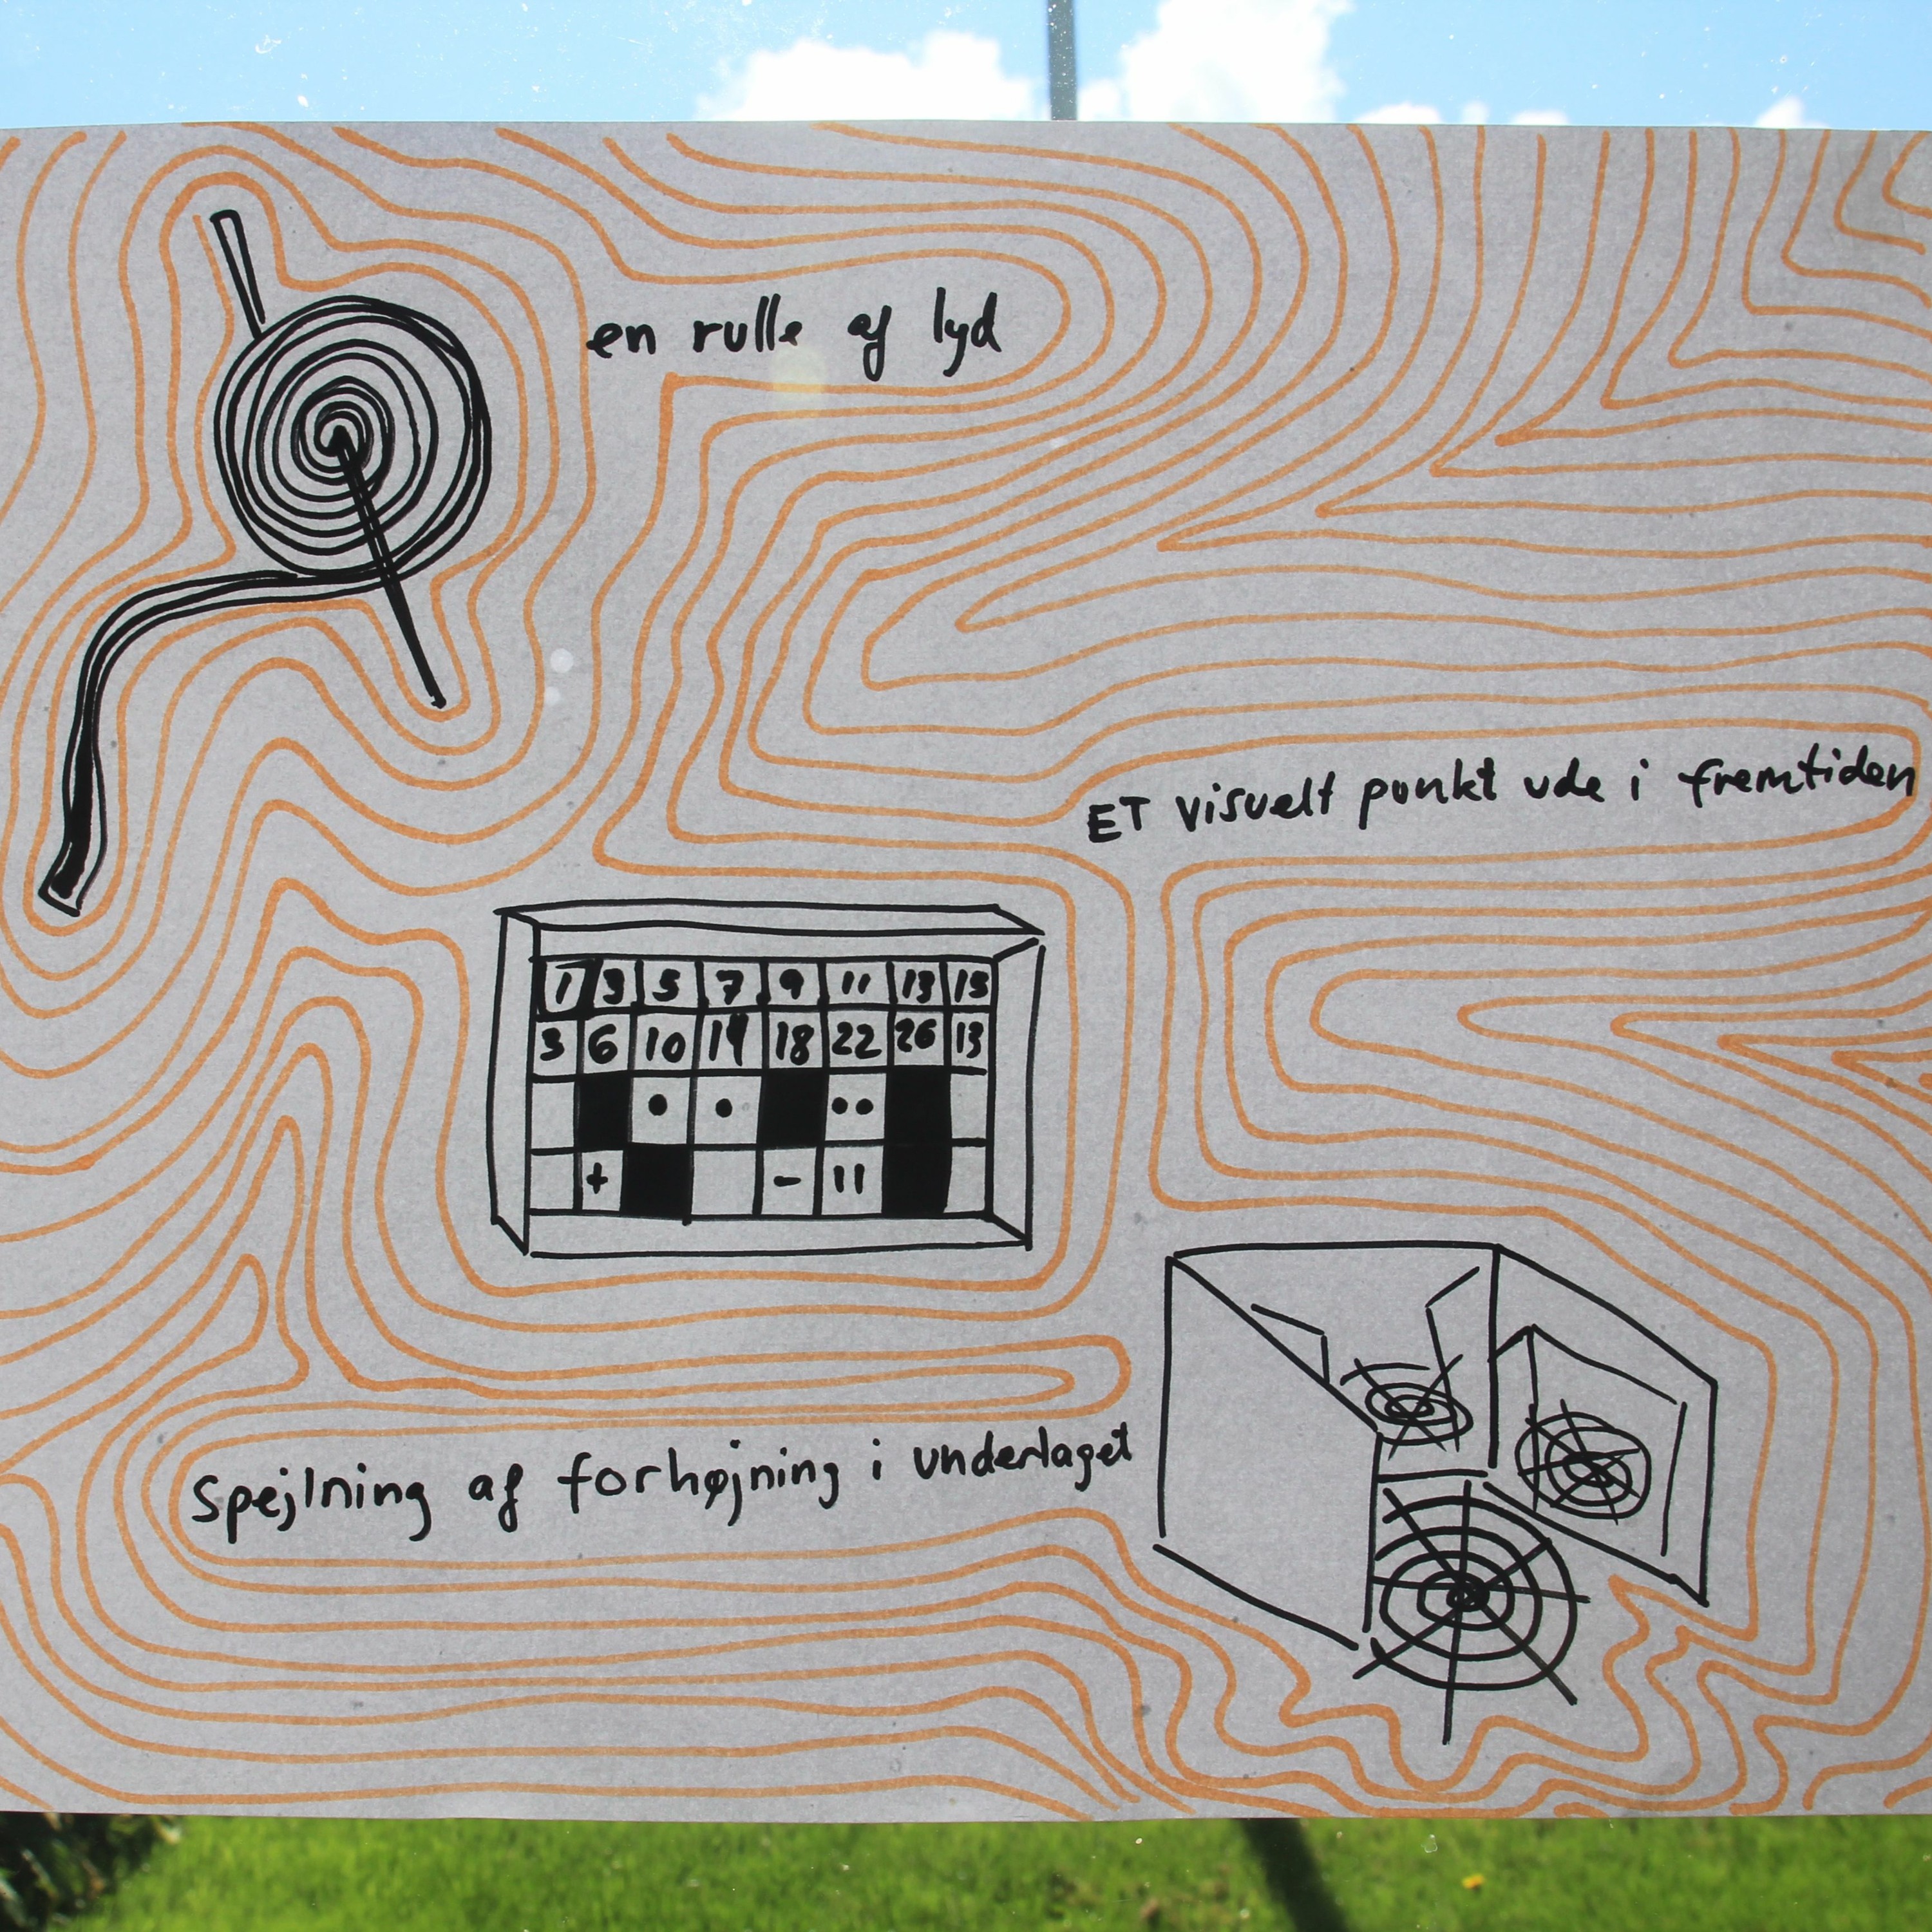 en rulle af lyd
ET visuelt punkt ude i fremtiden
1 3 5 7 9 11 13 15
3 6 10 14 18 22 26 13
+ - 11
spejlning af forhøjning i underlaget